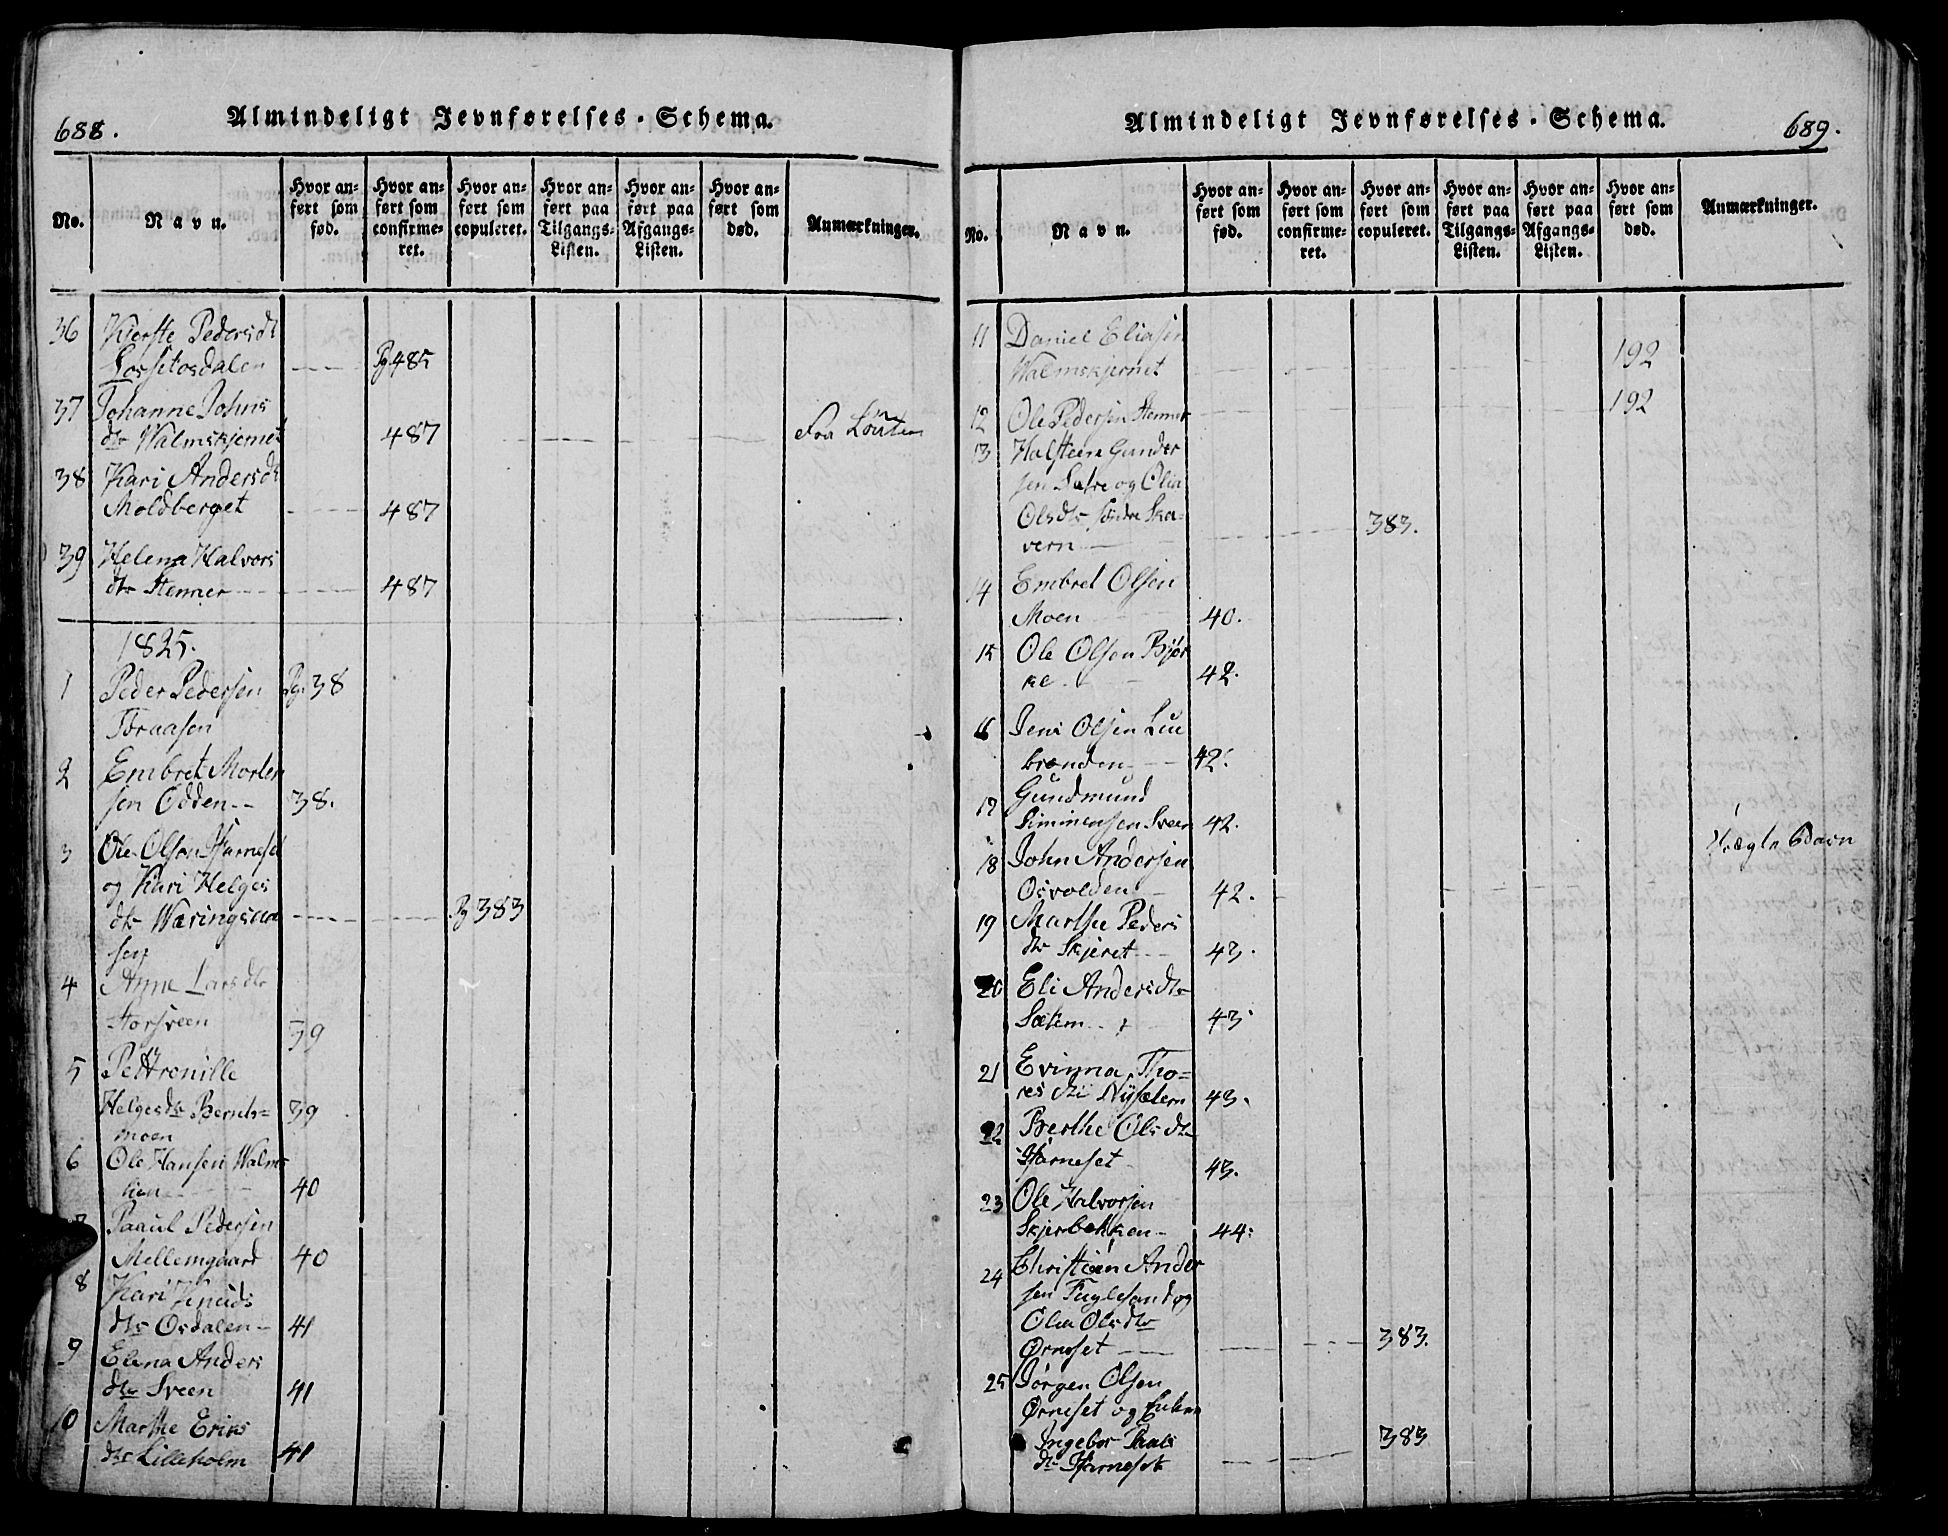 688.
Almindeligt Jevnførelses-Schema.
No.
Navn.
Hvor an-
ført som
fød.
Hvor an-
ført som
confirme-
ret.
Hvor an-
ført som
copuleret.
Hvor an-
ført paa
Tilgangs-
Listen.
Hvor an-
ført paa
Afgangs-
Listen.
Hvor an-
ført som
død.
Anmærkninger.
36 Kierste Pedersdt
Losseto​sdalen Pg 485
37 Johanne Johns
dtr Walmskjernet 487 fra Löiten
38 Kari Andersdt
Moldberget 487
39 Helena Halvors
dtr Stemer 487
1825.
1 Peder Pedersen Pg. 38
Toraasen
2 Embret Morten
sen Odden 38.
3 Ole Olsen Hjarneset
og Kari Helges
dtr Wæringsaa Pg 383
sen
4 Anne Larsdtr
Storsveen 39
5 Pettronille
Helgesdtr Bernts= 39
moen
6 Ole Hansen Walms
kien 40
7 Paaul Pedersen
Mellemgaard 40
8 Kari Knuds
dtr Osdalen 41
9 Elena Anders
dtr Sveen 41
10 Marthe Eriks
dtr Lilleholm 41
689.
Almindeligt Jevnførelses-Schema.
No.
Navn.
Hvor an-
ført som
fød.
Hvor an-
ført som
confirme-
ret.
Hvor an-
ført som
copuleret.
Hvor an-
ført paa
Tilgangs-
Listen.
Hvor an-
ført paa
Afgangs-
Listen.
Hvor an-
ført som
død.
Anmærkninger.
11 Daniel Eliasen
Walmskjernet 192
12 Ole Pedersen Stemer 192
13 Halsteen Gunder
sen Sætre og Olia
Olsdtr søndre Ska-
vern 383.
14 Embret Olsen
Moen 40.
15 Ole Olsen Bjør
ke 42.
16 Jens Olsen Lue
brænden 42.
17 Gundmund
Simmensen Sveen 42.
18 John Andersen
Osvolden 42.
19 Marthe Peders
dtr Skjeret 43.
20 Eli Andersdtr
Sætern 43
21 Evinna Tho=
res dtr Nysætern 43.
22 Berthe Olsdtr
Hjarneset 43.
23 Ole Halvorsen
Skjerbekken 44.
24 Christian Ander
sen Fuglesand og
Olia Olsdtr
Ørneset 383.
25 Jørgen Olsen
Ørneset og Enken
Ingebor Paals 383
dtr Hjarneset